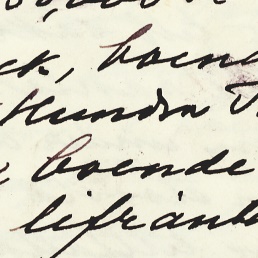 ck, boend
Hundra T
boende
lifränt